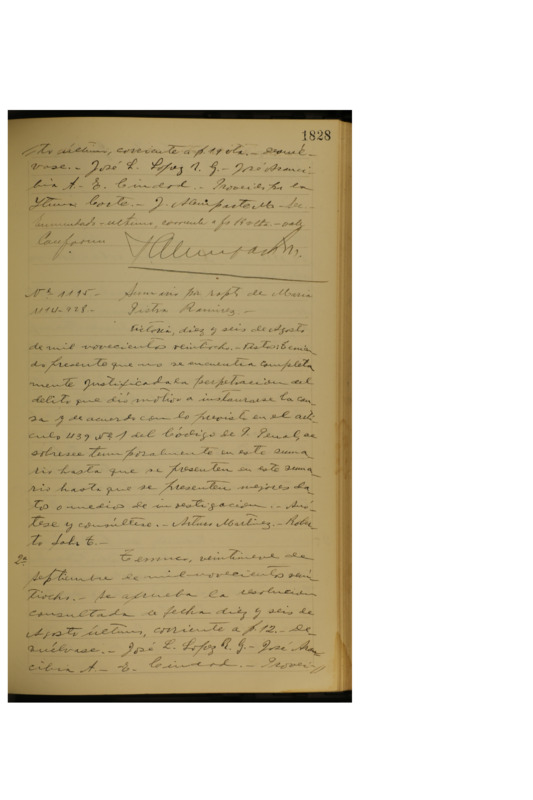 1828
to último, corriente a f 19 vta. - Devuél-
vase. - José L. Lopez R. G. - José Aranci-
bia A. - E. Ciudad. - Proveido por la
Iltma Corte. - J.
último, corriente a fs
Conforme
Nº 1195. - Sumario por rapto de Maria
1194-928. - Ramirez. -
Victoria, diez y seis de Agosto
de mil novecientos veintiocho. - Vistos: Tenien
do presente que no se encuentra completa
mente justificada la perpetracion del
delito que dió motivo a instaurarse la cau
sa y de acuerdo con lo previsto en el artí
culo 439 Nº 1 del Código de P. Penal, se
sobresee temporalmente en este suma
rio hasta que se presenten en este suma
rio hasta que se presenten mejores da
tos o medios de investigacion. - Anó
tese y consúltese. - Arturo Martinez. - Rober
to
2a Temuco, veintinueve de
septiembre de mil novecientos vein
tiocho. - Se aprueba la resolucion
consultada de fecha diez y seis de
Agosto último, corriente a f 12. - De
vuélvase. - José L. Lopez R. G. - José Aran
cibia A. - E. Ciudad. - Provei